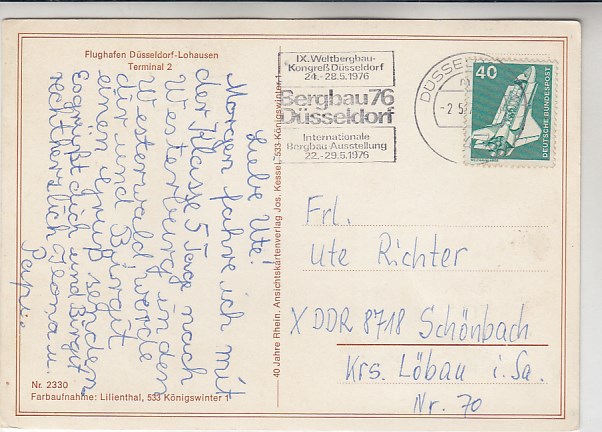 Flughafen Düsseldorf-Lohausen
Terminal 2
Liebe Ute!
Morgen fahre ich mit
der Klasse 5 Tage nach
Westerburg in den
Westerwald werde
dir und Birgit
einen Gruß senden
Es grüßt dich und Birgit
recht herzlich Ilona u.
Nr. 2330
Farbaufnahme: Lilienthal, 533 Königswinter 1
40 Jahre Rhein. Ansichtskartenverlag Jos. Kessel, 533 Königswinter 1
IX. Weltbergbau-
Kongreß Düsseldorf
24.-28.5.1976
Bergbau 76
Düsseldorf
Internationale
Bergbau-Ausstellung
22.-29.5.1976
DÜSSEL
-2.5.
40
DEUTSCHE BUNDESPOST
Frl.
Ute Richter
X DDR 8718 Schönbach
Krs. Löbau i. Sa.
Nr. 70